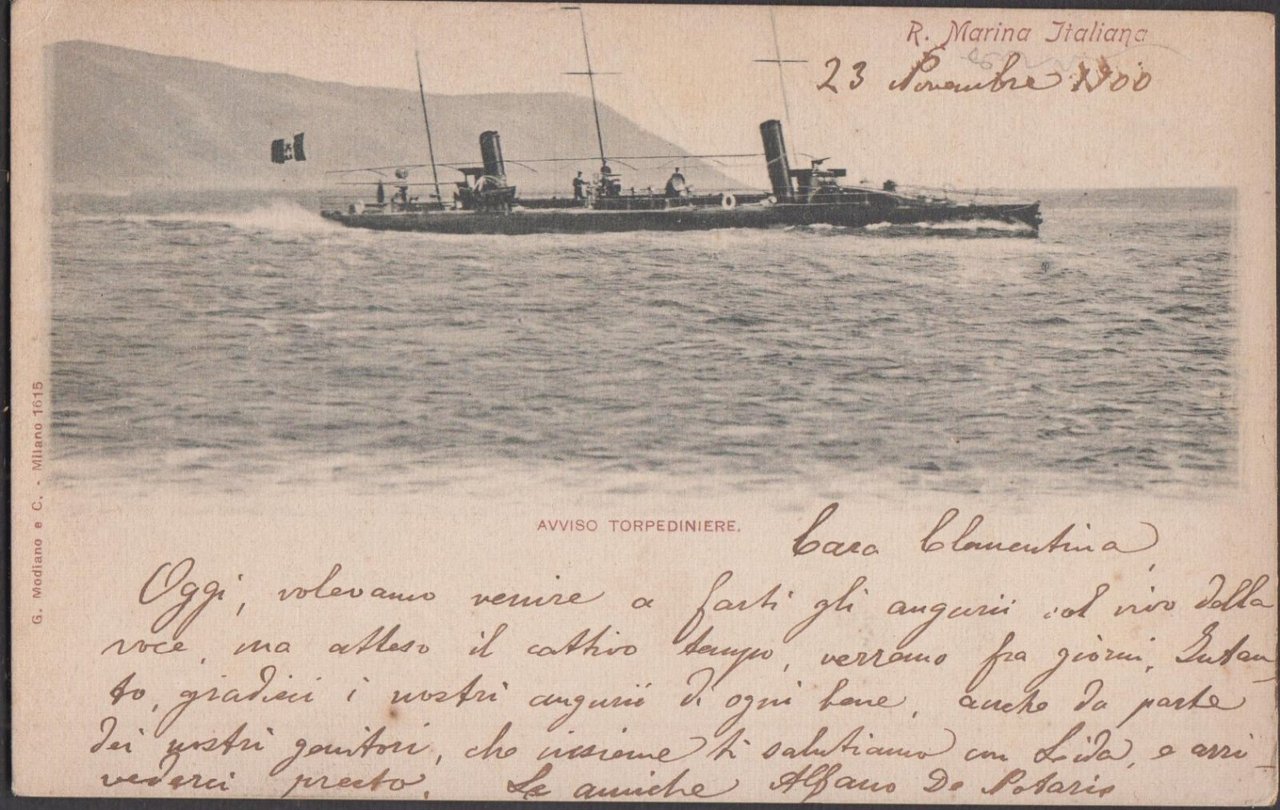 R. Marina Italiana
23 Novembre 1900
G. Modiano e C. - Milano 1615
AVVISO TORPEDINIERE.
Cara Clementina,
Oggi, volevamo venire a farti gli augurii col vivo della
voce, ma atteso il cattivo tempo, verremo fra giorni. Intan
to, gradisci i nostri augurii di ogni bene, anche da parte
dei nostri genitori, che insieme ti salutiamo con Lida, e arri
vederci presto. Le amiche Alfano De